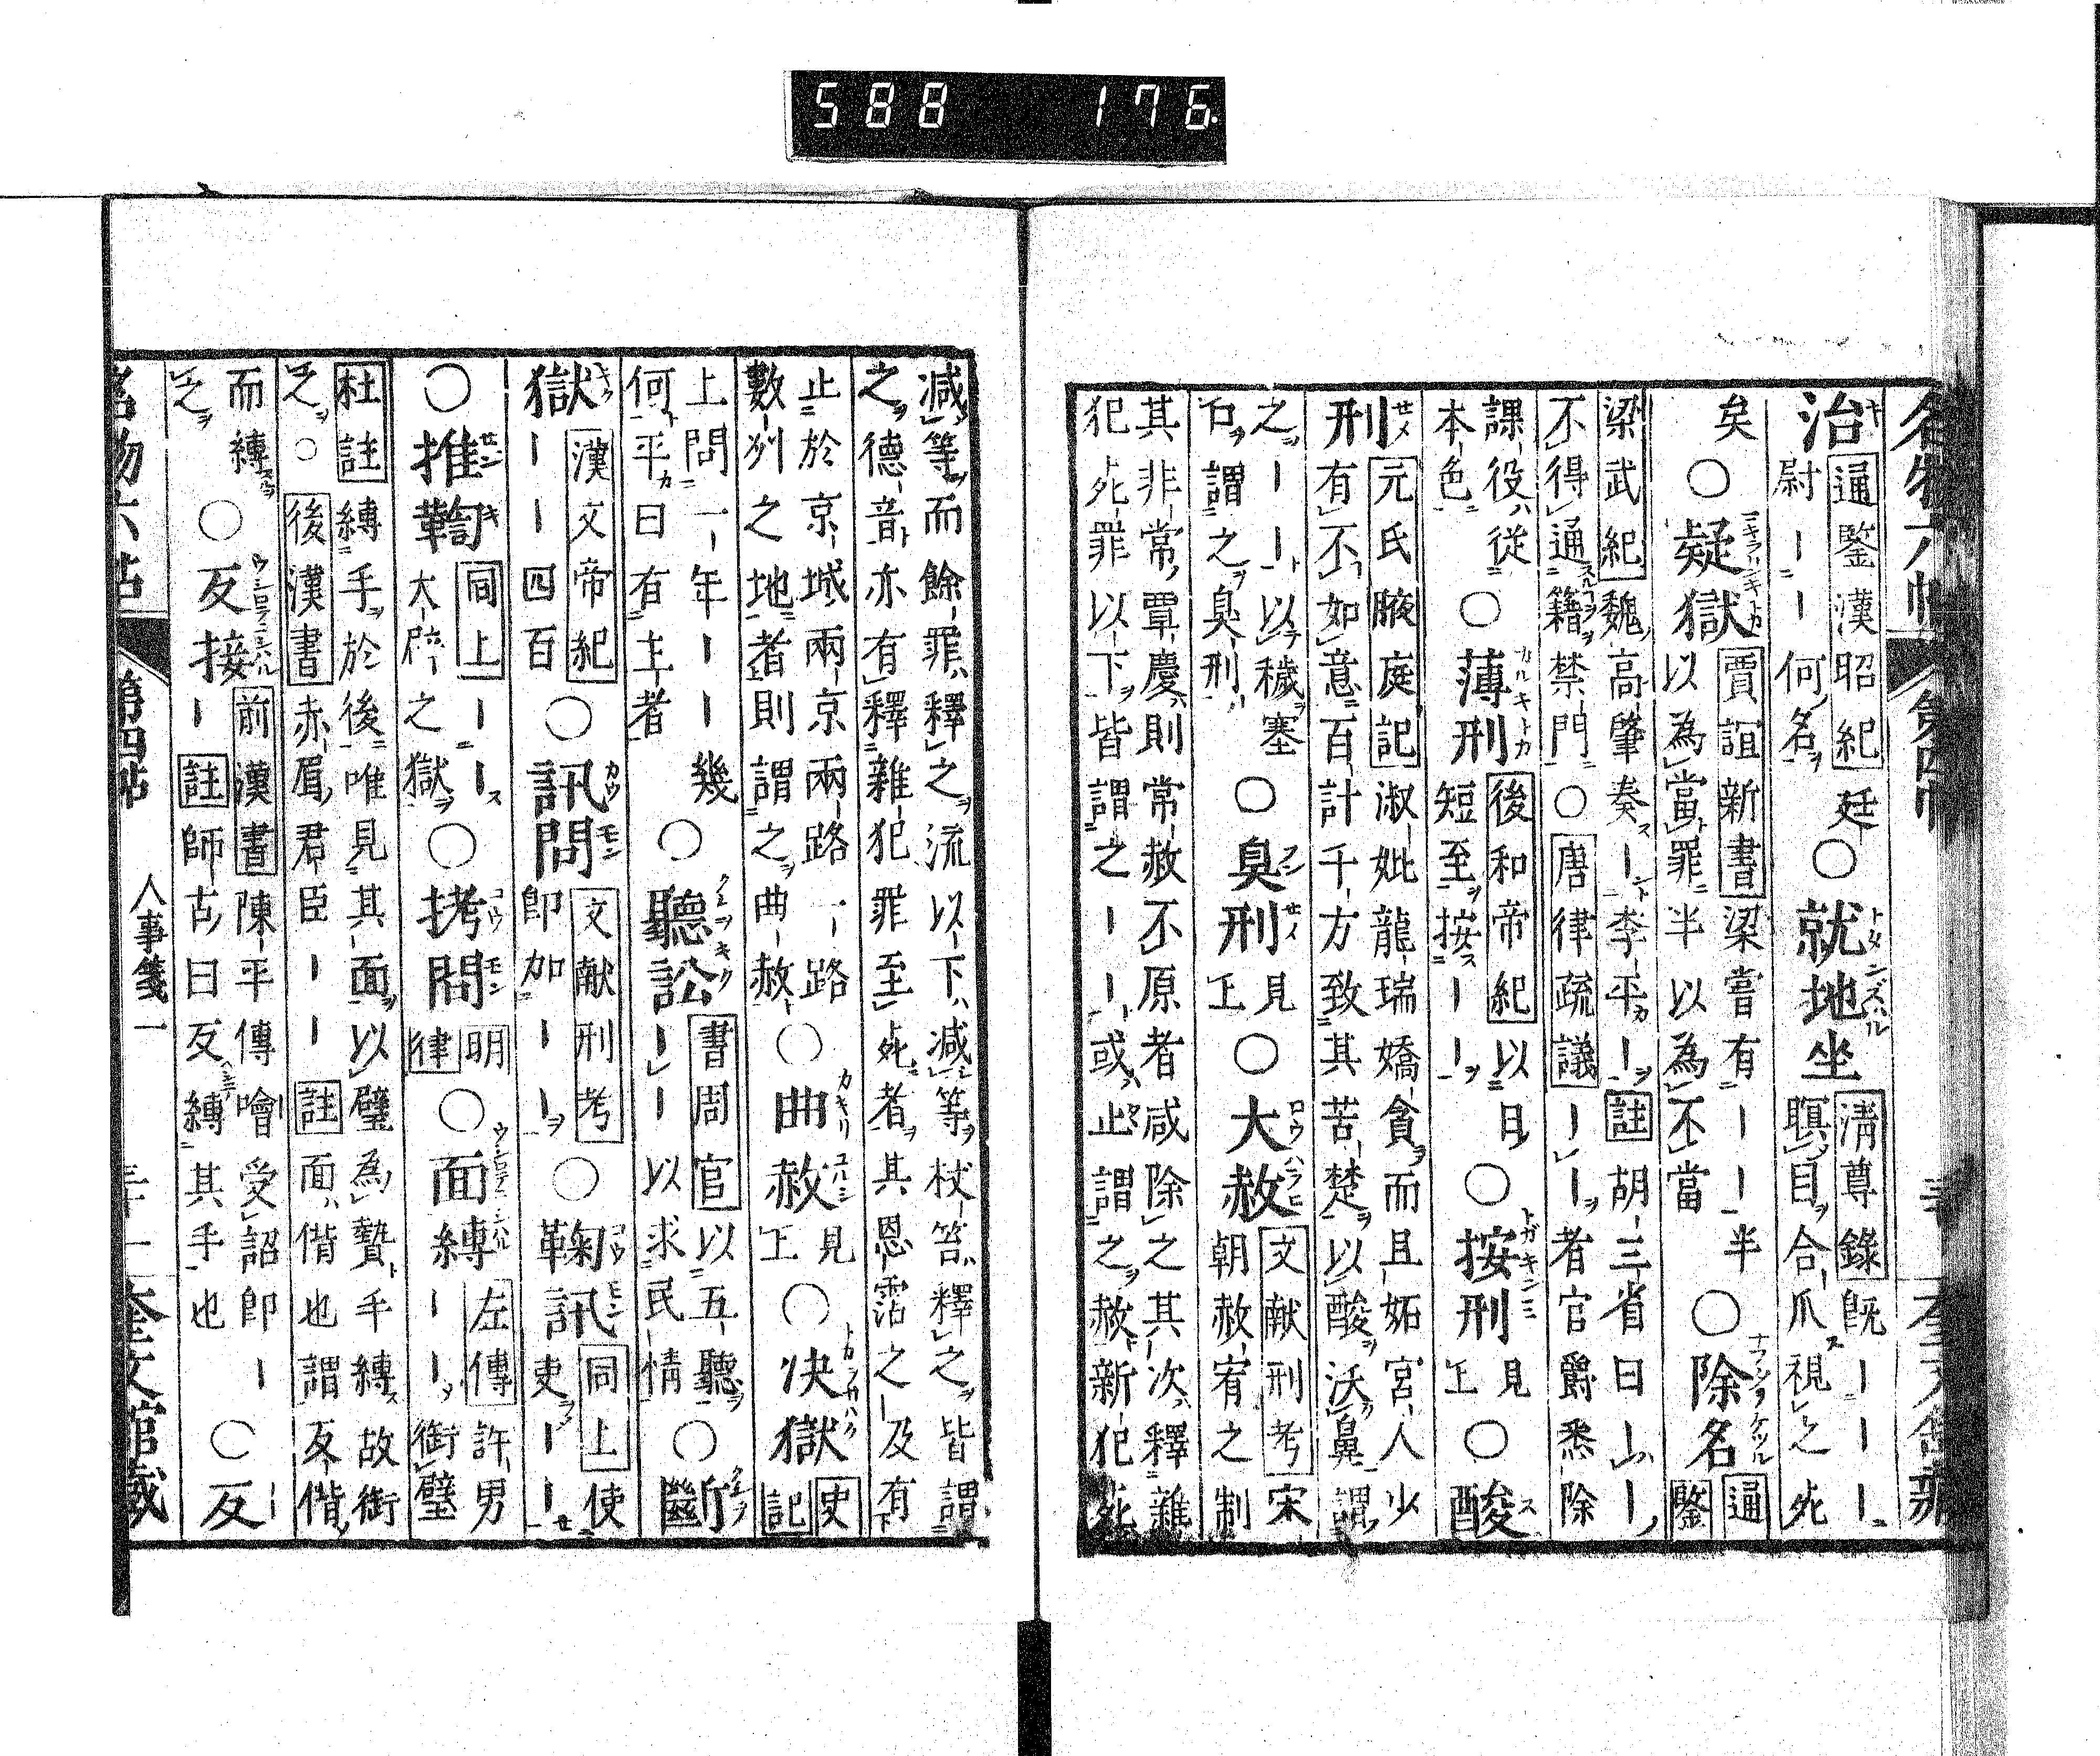 588 176
名物六帖 第四帖 奎文館藏
治 通鑒漢昭紀 廷
尉ーー何名 ○就地坐 清尊錄 既ーーー
瞑目合爪視之死
矣 ○疑獄 賈誼新書 梁嘗有ーー半
以為當罪半以為不當 ○除名 通鑒
梁武紀 魏高肇奏ー李平ー 註 胡三省曰ーー
不得通籍禁門 ○ 唐律疏議 ーー者官爵悉除
課役從
本色 ○薄刑 後和帝紀 以日
短至按ーー ○按刑 見上 ○酸
刑 元氏腋庭記 淑妣龍瑞嬌貪而且妬宮人少
有不如意百計千方致其苦楚以酸沃鼻謂
之ーー以穢塞
口謂之臭刑 ○臭刑 見上 ○大赦 文献刑考 宋
朝赦宥之制
其非常覃慶則常赦不原者咸除之其次釋雜
犯死罪以下皆謂之ーー或止謂之赦新犯死
減等而餘罪釋之流以下減等杖笞釋之皆謂
之德音亦有釋雜犯罪至死者其恩霑之及有
止於京城兩京兩路一路
數州之地者則謂之曲赦 ○曲赦 見上 ○決獄 史記
上問一年ーー幾
何平曰有主者 ○聽訟 書周官 以五聽
ーー以求民情 ○斷
獄 漢文帝紀
ーー四百 ○訊問 文献刑考
即加ーー ○鞠訊 同上 使
吏ーー
○推鞫 同上 ーー
大辟之獄 ○拷問 明律 ○面縛 左傳 許男
ーー銜璧
杜註 縛手於後唯見其面以璧為贄手縛故銜
之 ○ 後漢書 赤眉君臣ーー 註 面偝也謂反偝
而縛
之 ○反接 前漢書 陳平傳噲受詔即ー
ー 註 師古曰反縛其手也 ○反
名物六帖 第四帖 人事箋一 奎文館藏